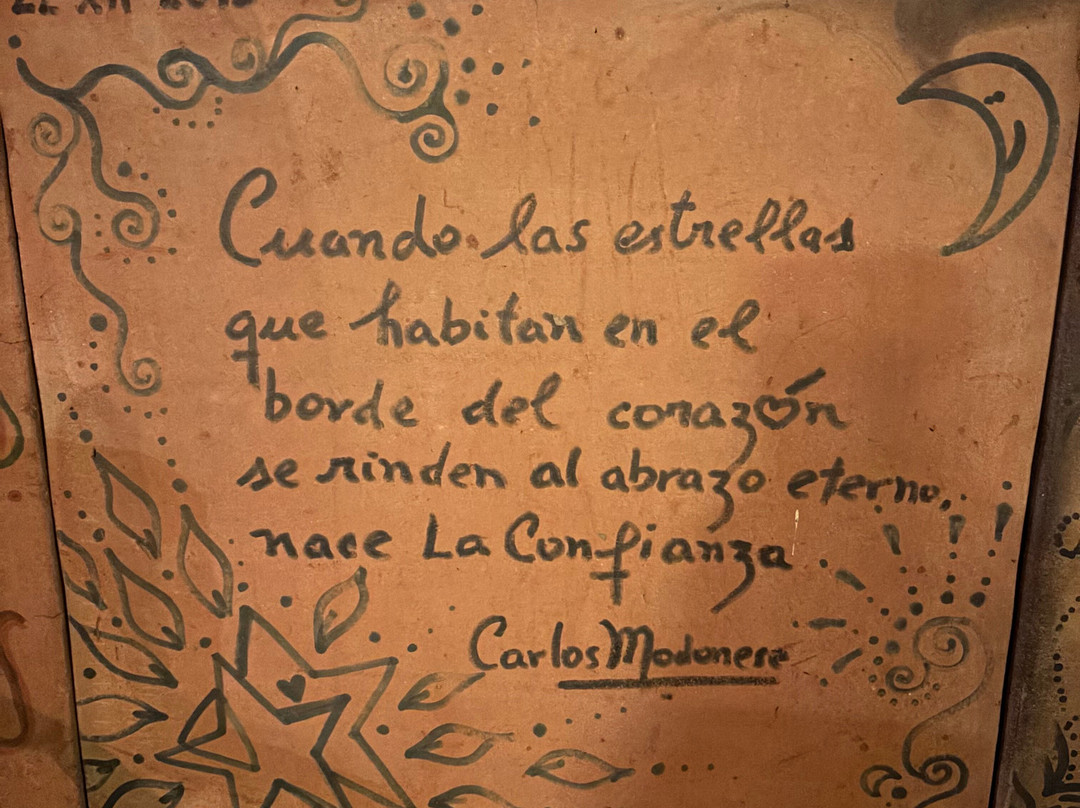 Cuando las estrellas
que habitan en el
borde del corazón
se rinden al abrazo eterno,
nace La Confianza
Carlos Modonese